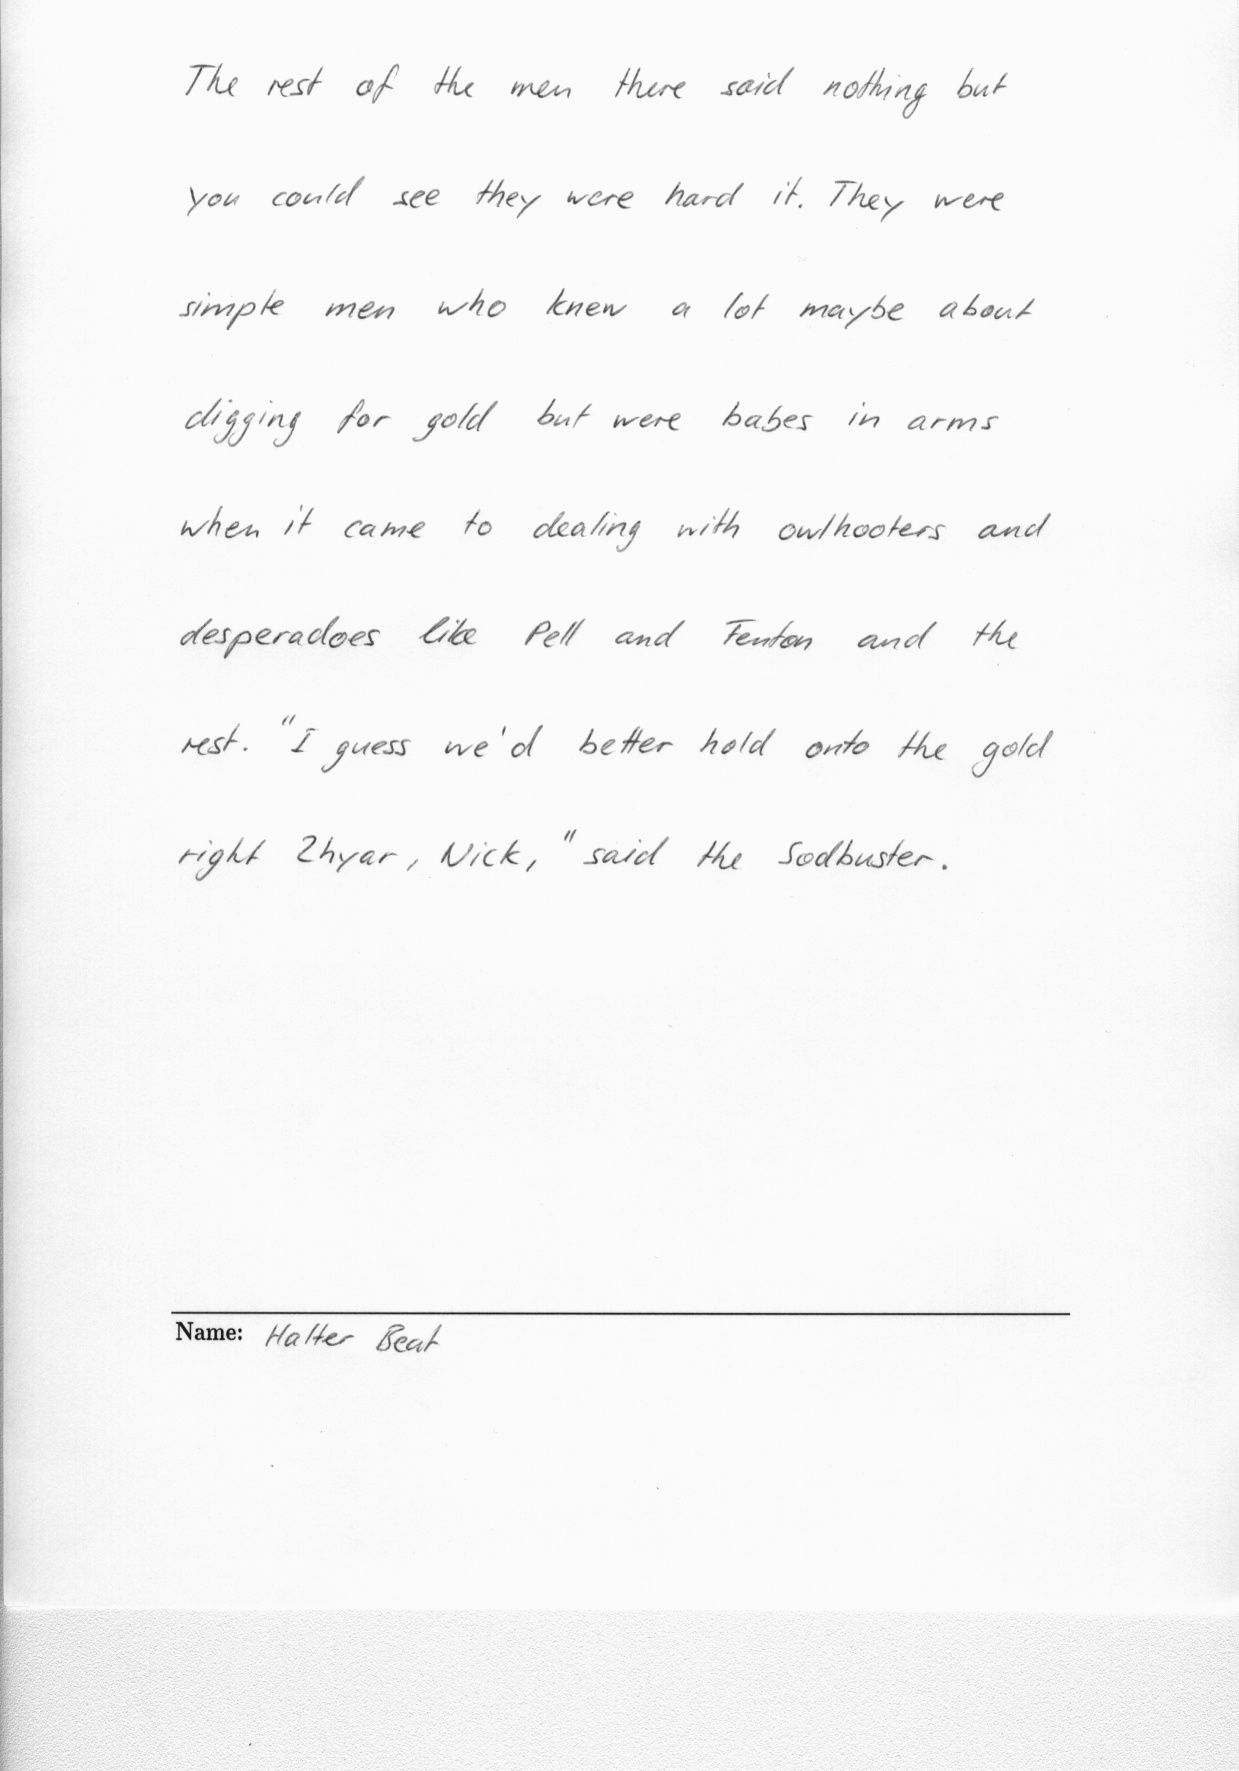 The rest of the men there said nothing but
you could see they were hard it. They were
simple men who knew a lot maybe about
digging for gold but were babes in arms
when it came to dealing with owlhooters and
desperadoes like Pell and Fenton and the
rest. "I guess we'd better hold onto the gold
right 2hyar, Nick," said the Sodbuster.
Name: Halter Beat